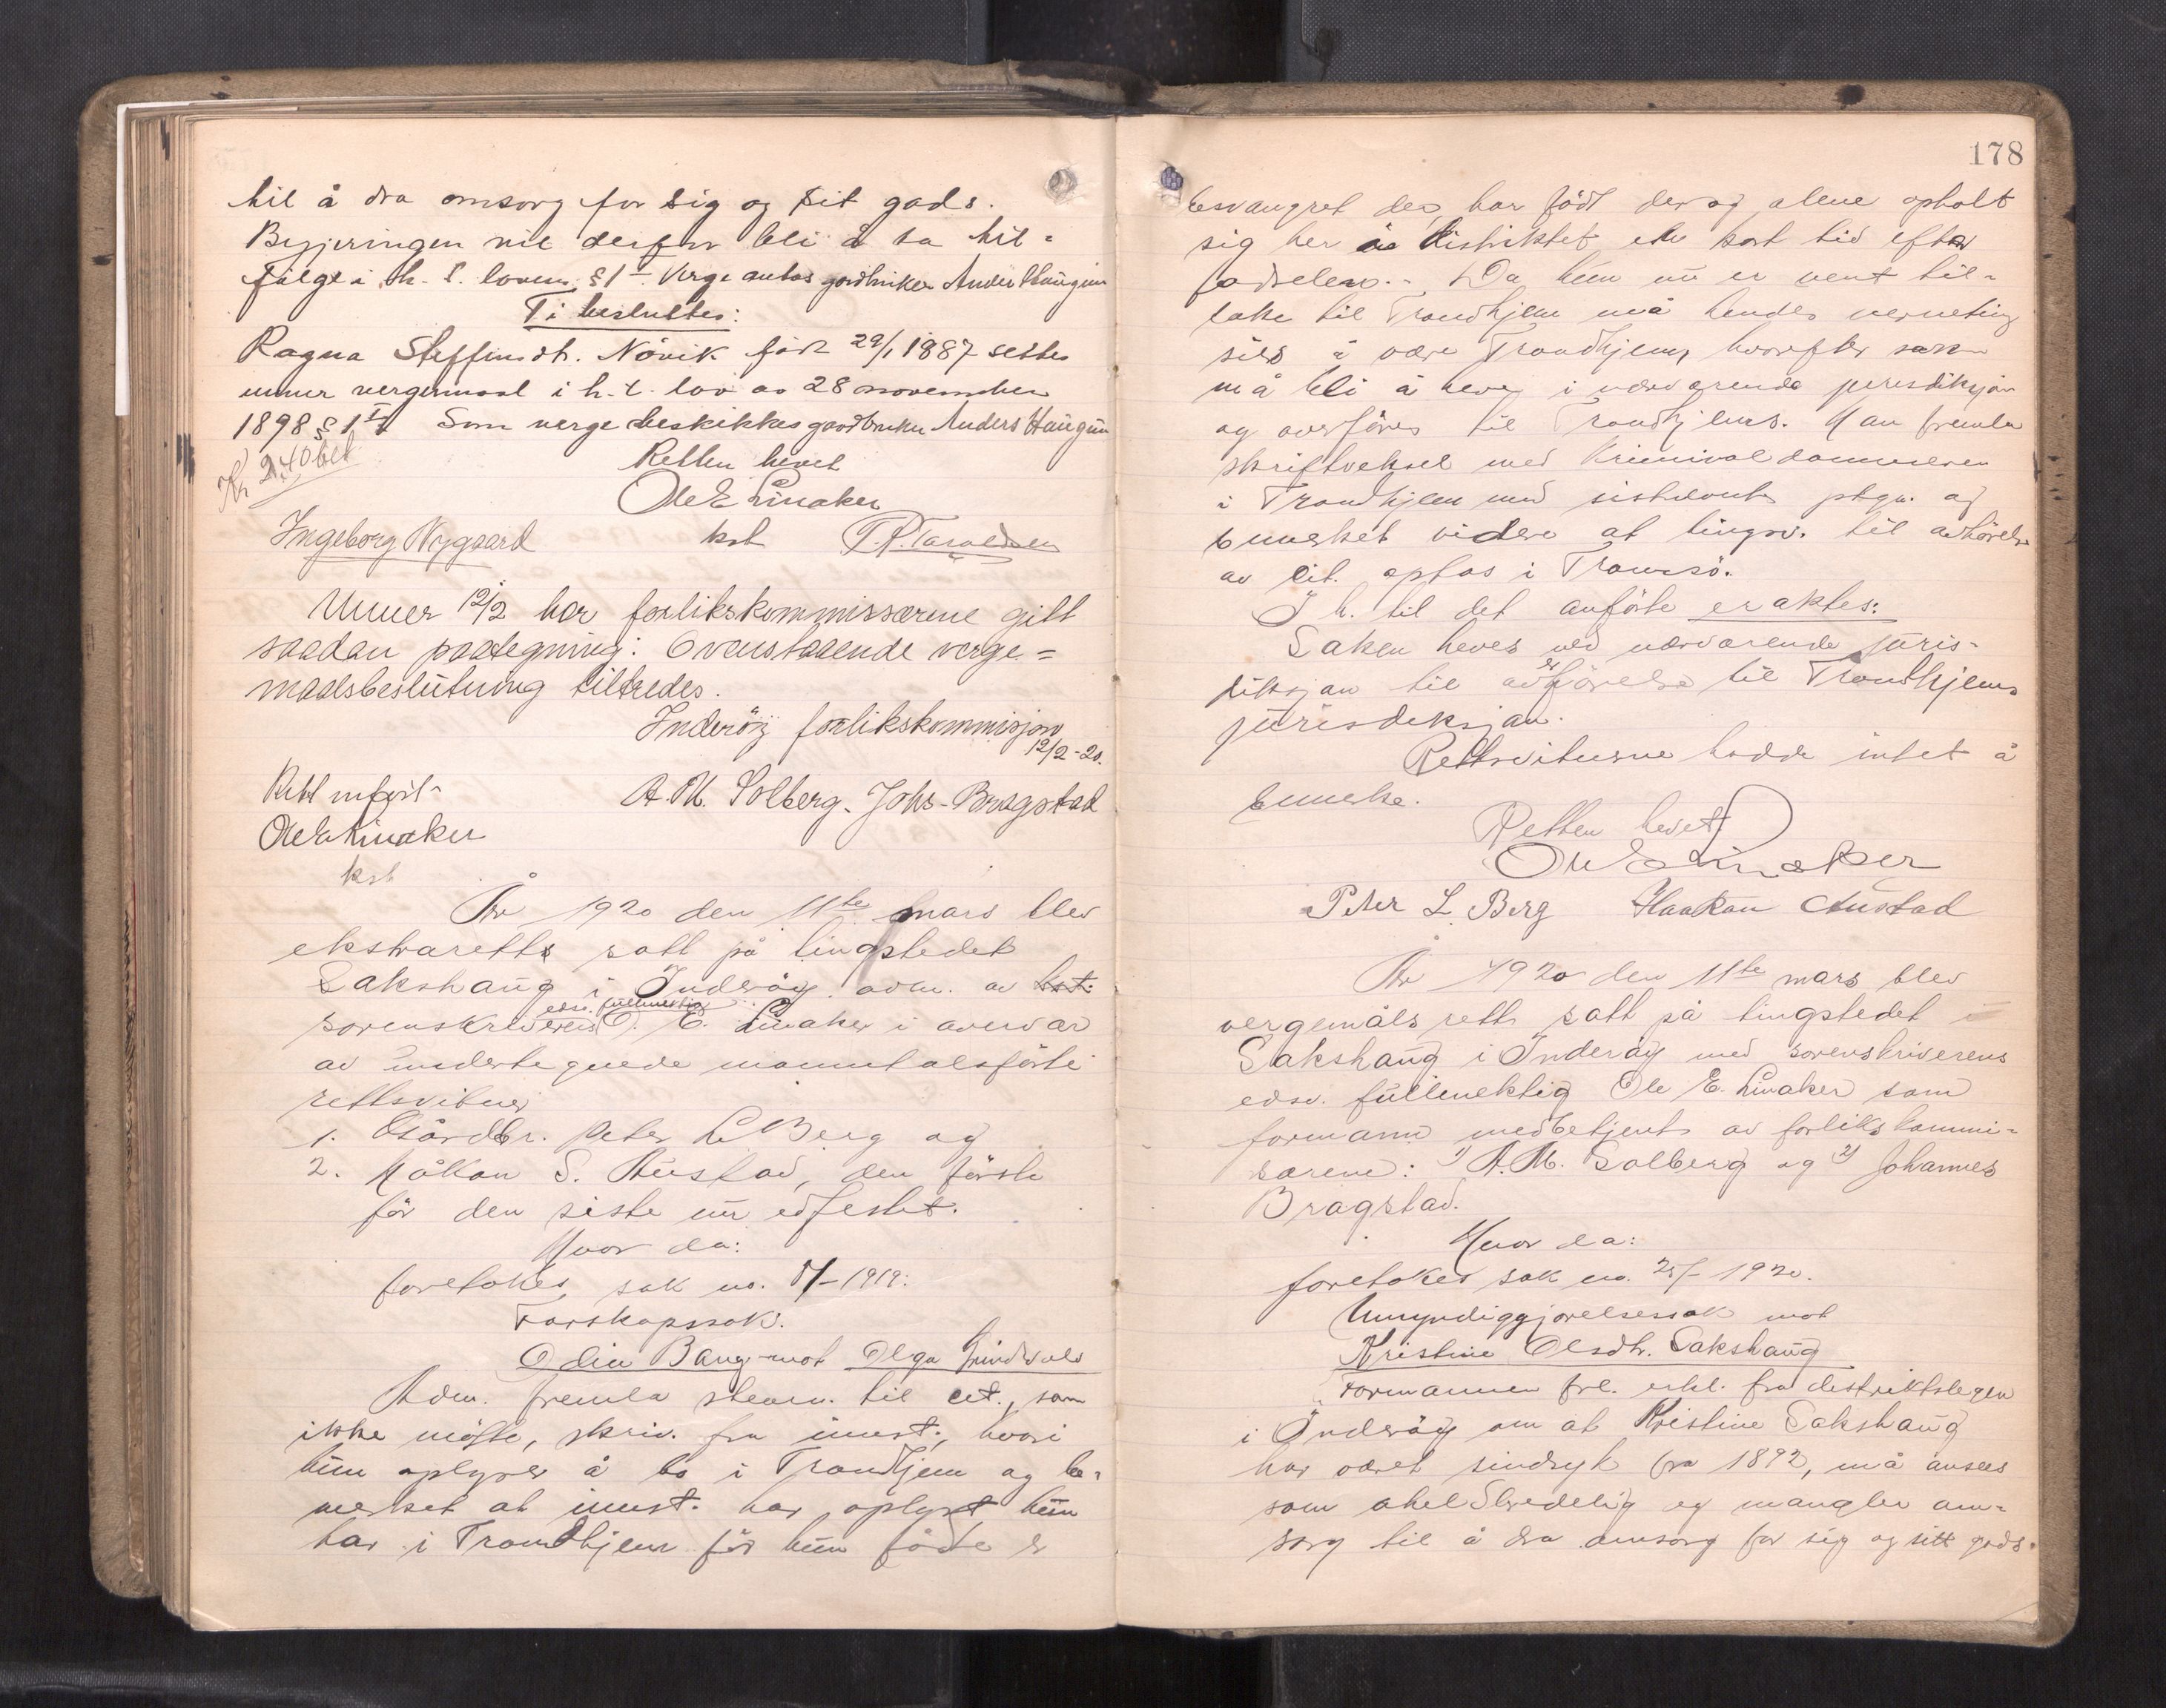 til å dra omsorg for sig og sit gods.
Begjæringen vil derfor bli å ta til=
følge i h. t. lovens § 1 Verge antas gårdbruker Anders Haugum
Ti besluttes:
Ragna Steffensdt. Növik född 29/1 1887 settes
unner vergemaal i h. t. lov av 28 november
1898 § 1 Som verge beskikkes gaardbruker Anders Haugum
Kr 2,40 bet
Retten hevet
Ole E Linaker
Ingeborg Nygaard kst T. P. Taraldsen
Unner 12/2 har forlikskommissærene gitt
saadan paategning: Ovenstaaende verge=
maalsbeslutning tiltredes.
Inderöy forlikskommisjon
12/2-20.
Rett utført A. M. Solberg. Johs. Bragstad
Ole E Linaker
kst
År 1920 den 11te mars blev
ekstrarett satt på tingstedet
Sakshaug i Inderöy adm. av kst.
sorenskriverens edsv. fullmektig O. E. Linaker i overvær
av undertegnede manntalsførte
rettsvitner
1. Gårdbr. Peter L Berg og
2. Håkon S. Austad, den første
før den siste nu edfestet.
Hvor da:
foretokes sak no. 7/-1919:
Farskapssak.
Odin Bang mot Olga Lindvals
Adm. fremla stevn. til cit., som
ikke møtte, skriv. fra innst., hvori
hun oplyses å bo i Trondhjem og be=
merket at innst. har oplyst hun
har i Trondhjem før hun fødte er
178
besvangret der, har født der og alene opholt
sig her i distriktet en kort tid efter
fødselen. - Da hun nu er vent til=
bake til Trondhjem må hendes verneting
sies å være Trondhjem, hvorefter saken
må bli å heve i nærværende jurisdiksjon
og overføres til Trondhjems. Han fremla
skriftveksel med Kriminaldommeren
i Trondhjem med sistnevntes ptgn. og
bemerket videre at tingsv. til avhørelse
av cit. optas i Tromsö.
I h. til det anførte eraktes:
Saken heves ved nærværende juris=
diksjon til overførelse til Trondhjems
jurisdiksjon.
Rettsvitnerne hadde intet å
bemerke.
Retten hevet
Ole E Linaker
Peter L. Berg Haakon Austad
År 1920 den 11te mars blev
vergemålsrett satt på tingstedet
Sakshaug i Inderöy med sorenskriverens
edsv. fullmektig Ole E. Linaker som
formann medbetjent av forlikskommi=
særene: 1) A. M. Solberg og 2) Johannes
Bragstad.
Hvor da:
foretokes sak no. 25/- 1920.
Umyndiggjørelsessak mot
Kristine Olsdtr. Sakshaug
Formannen frl. erkl. fra distriktslegen
i Inderöy om at Kristine Sakshaug
har været sindsyk fra 1892, må ansees
som uhelbredelig og mangler om=
sorg til å dra omsorg for sig og sitt gods.